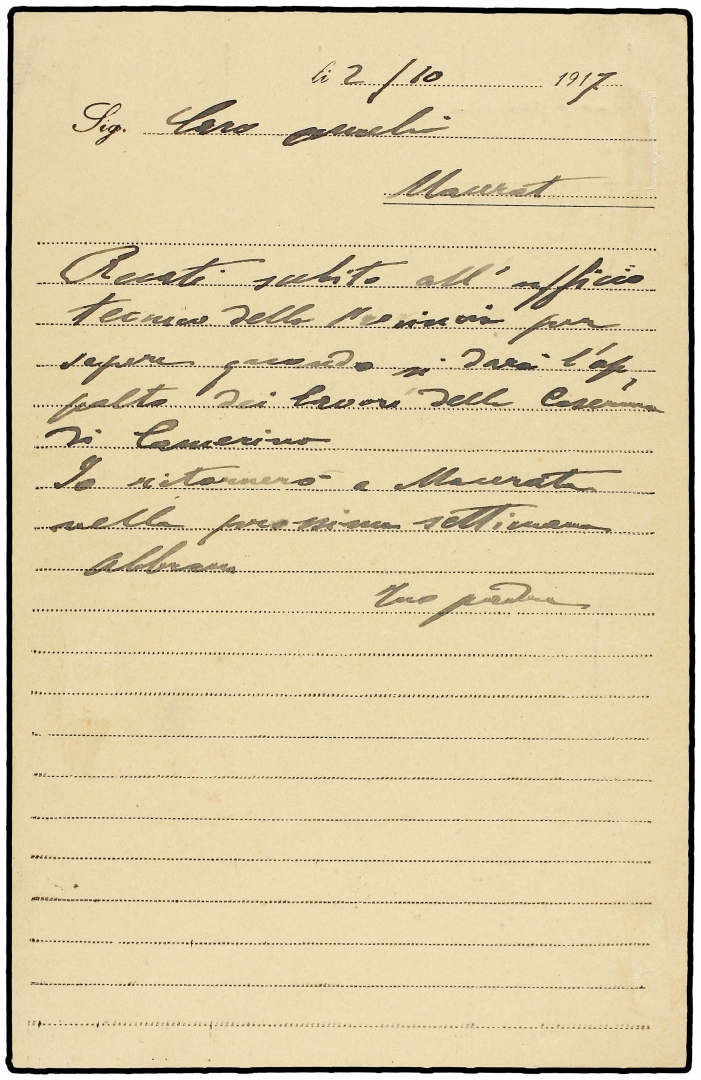 li 2/10 1917
Sig. Caro Amelio
Macerat
Recati subito all'ufficio
tecnico della Provincia per
sapere quando si darà l'ap,
palto dei lavori della Caserma
di Camerino
Io ritornerò a Macerata
nella prossima settimana
Abbracci
Tuo padre